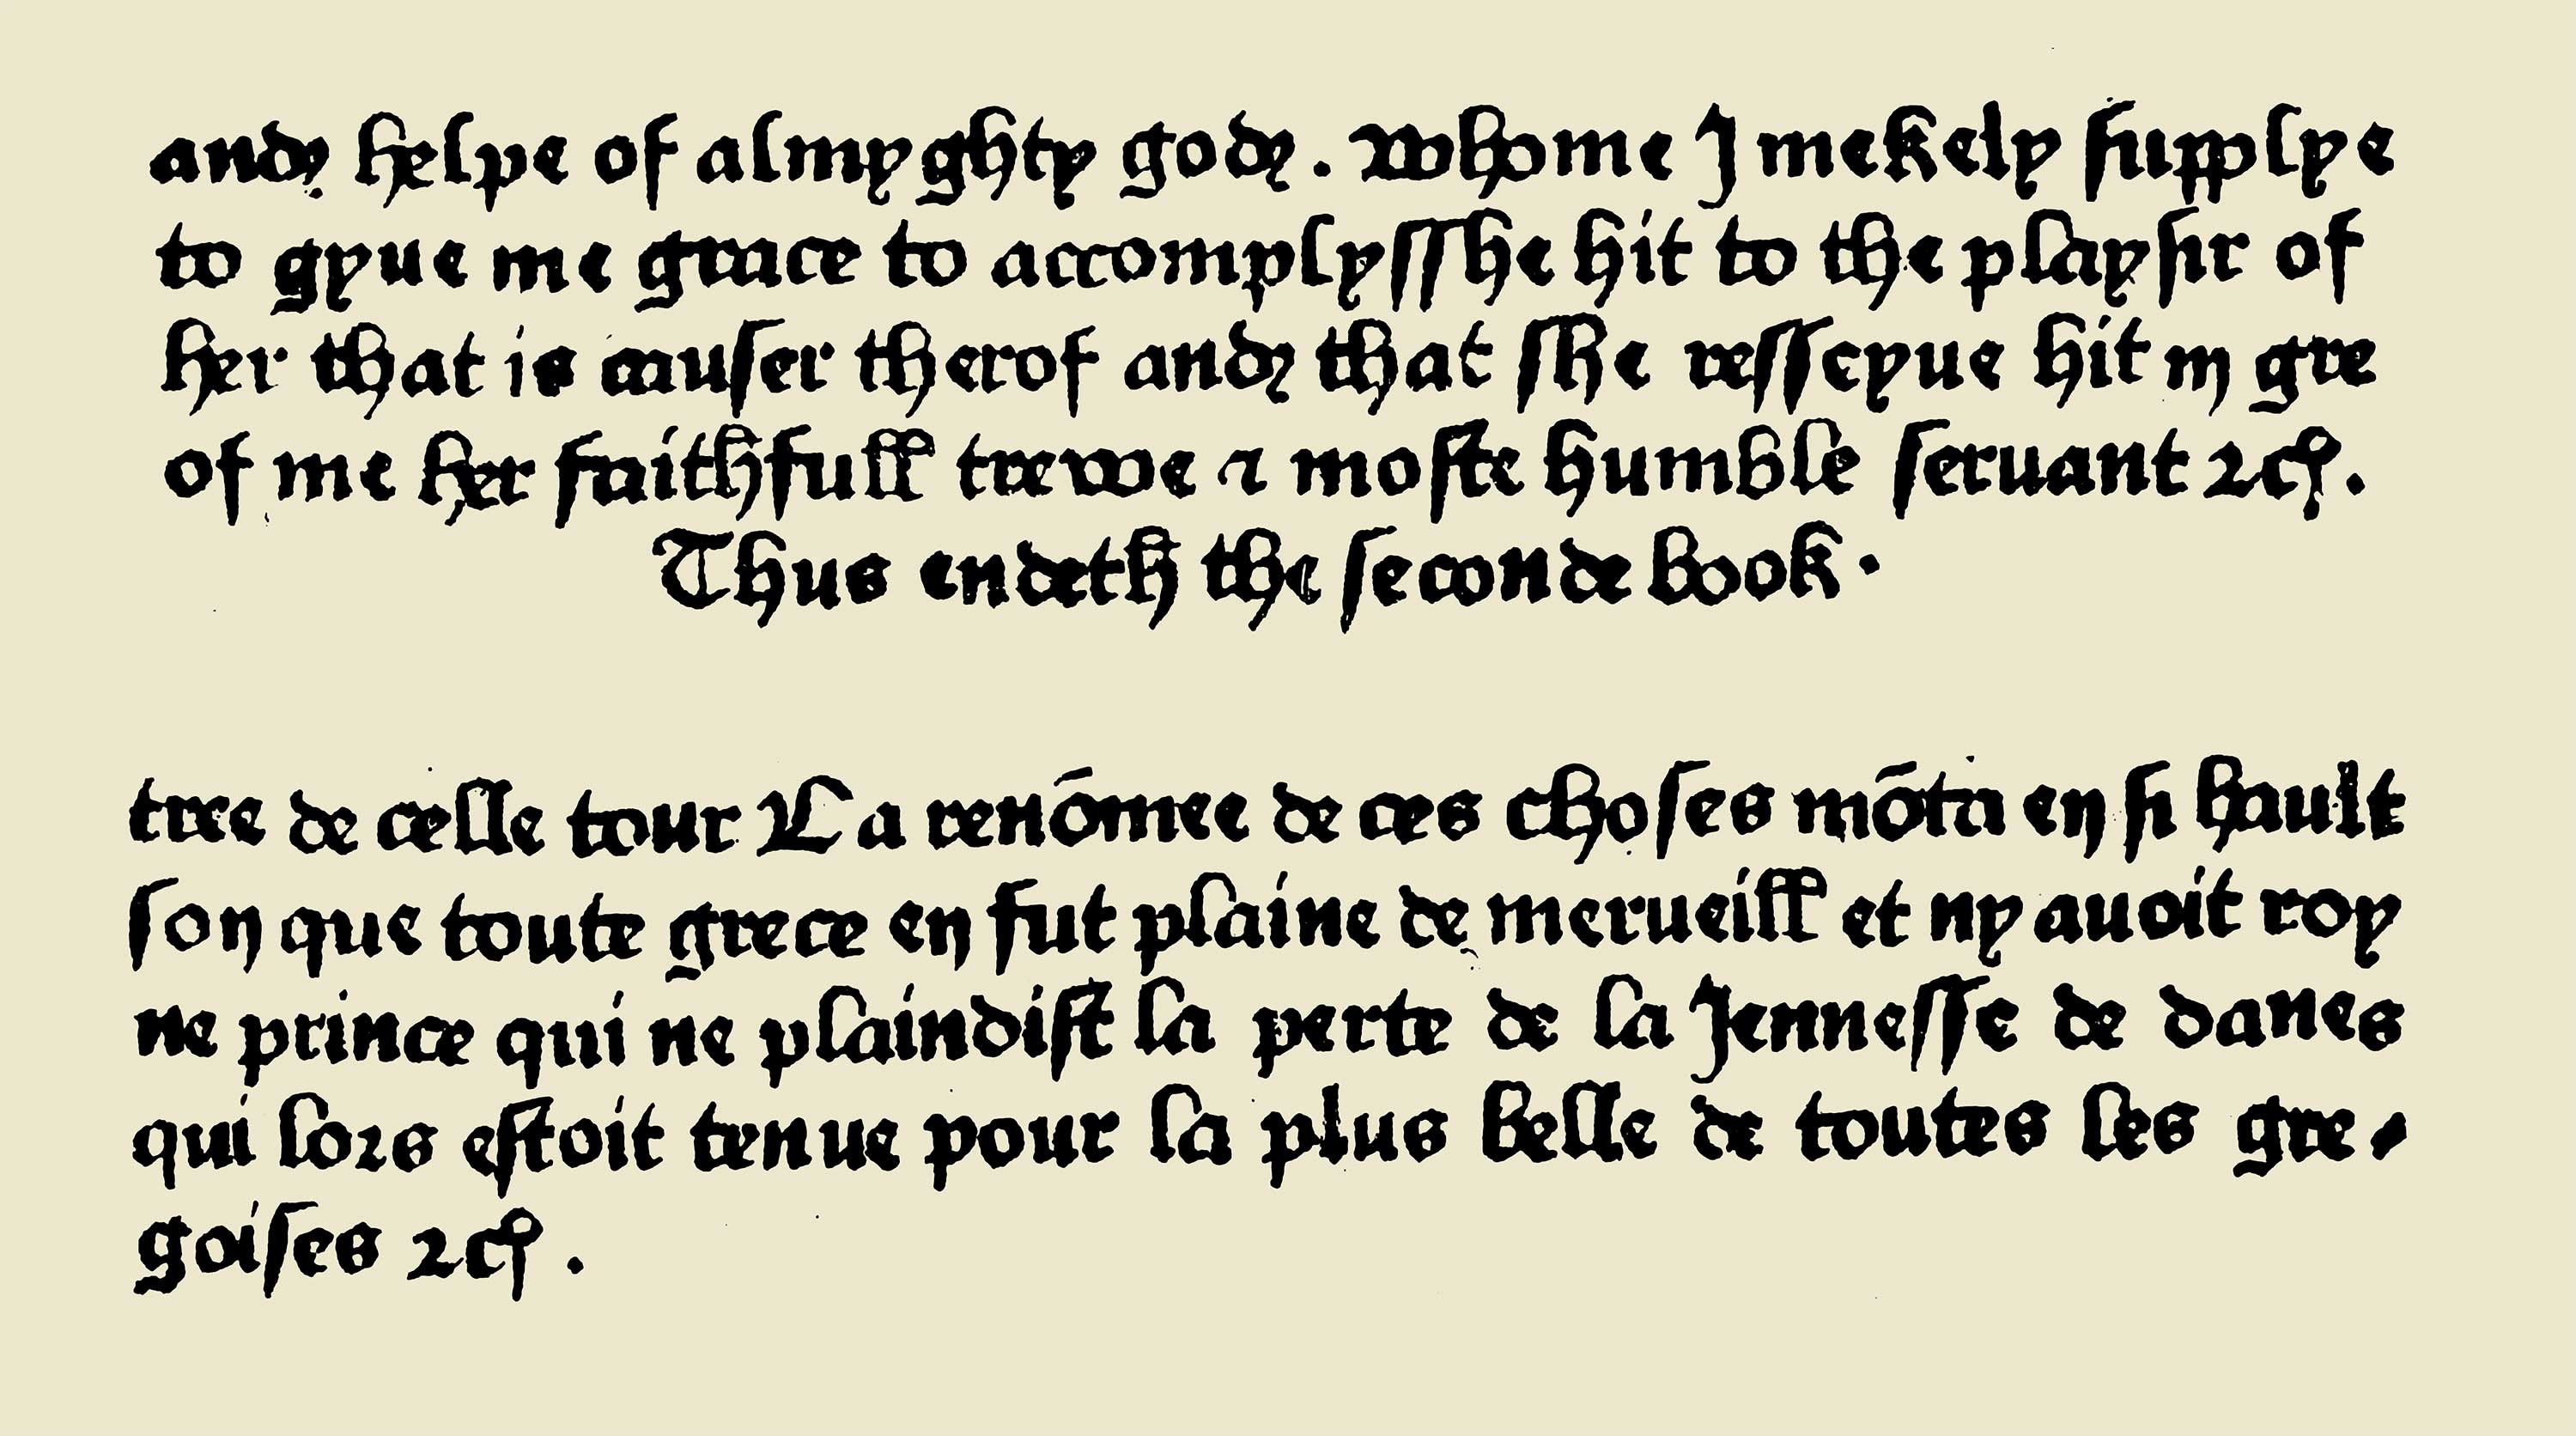 and helpe of almyghty god . Whome J mekely ſupplye
to gyue me grace to accomplyſſhe hit to the playſir of
her that is cauſer therof and that ſhe reſſeyue hit in gre
of me her faithfull trewe ⁊ moſte humble ſeruant ⁊cꝭ.
Thus endeth the ſeconde book ·
tree de celle tour La renōmee de ces choſes mōta en ſi hault
ſon que toute grece en fut plaine de merueill et ny auoit roy
ne prince qui ne plaindiſt la perte de la Jenneſſe de danes
qui loꝛs eſtoit tenue pour la plus belle de toutes les gre⸗
goiſes ⁊cꝭ .